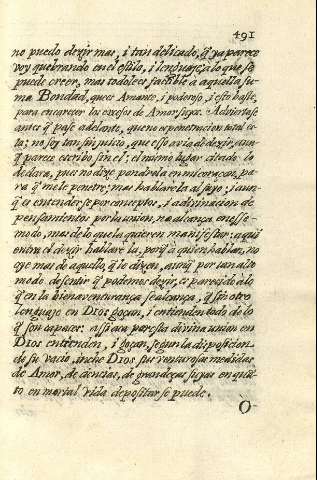 491
no puedo dezir mas, i tan delicado, q̃ ya parece
voy quebrando en el estilo, i lenguaje; a lo que se
puede creer, mas todo le es factible a aquella su-
ma Bondad, que es Amante, i poderoso, i esto baste,
para encarecer los excesos de Amor suyos. Adviertase
antes q̃ pase adelante, que no es penetracion total es-
ta; no soy tan sin juicio, que esso avia de dezir, aun-
q̃ parece escribo sin el: el mismo lugar citado lo
declara, pues no dize pondrela en mi coraçon, pa-
ra q̃ me le penetre; mas hablarele al suyo; i aun-
q̃ es entenderse por conceptos, i adivinacion de
pensamientos por la union, no alcança en esse
modo, mas de lo que la quieren manifestar: aqui
entra el dezir hablare la, porq̃ a quien hablan, no
oye mas de aquello, q̃ le dizen, aunq̃ por tan alto
modo de sentir q̃ podemos dezir, es parecido a lo
q̃ en la bienaventurança se alcança, q̃ sin otro
lenguajo en Dios goçan, i entienden todo lo
q̃ son capaces: assi acà por esta divina union en
Dios entienden, i goçan, segun la disposicion
de su vacio, inche Dios sus venturosas medidas
de Amor, de ciencias, de grandezas suyas en quã-
to en mortal vida depositar se puede.
O-